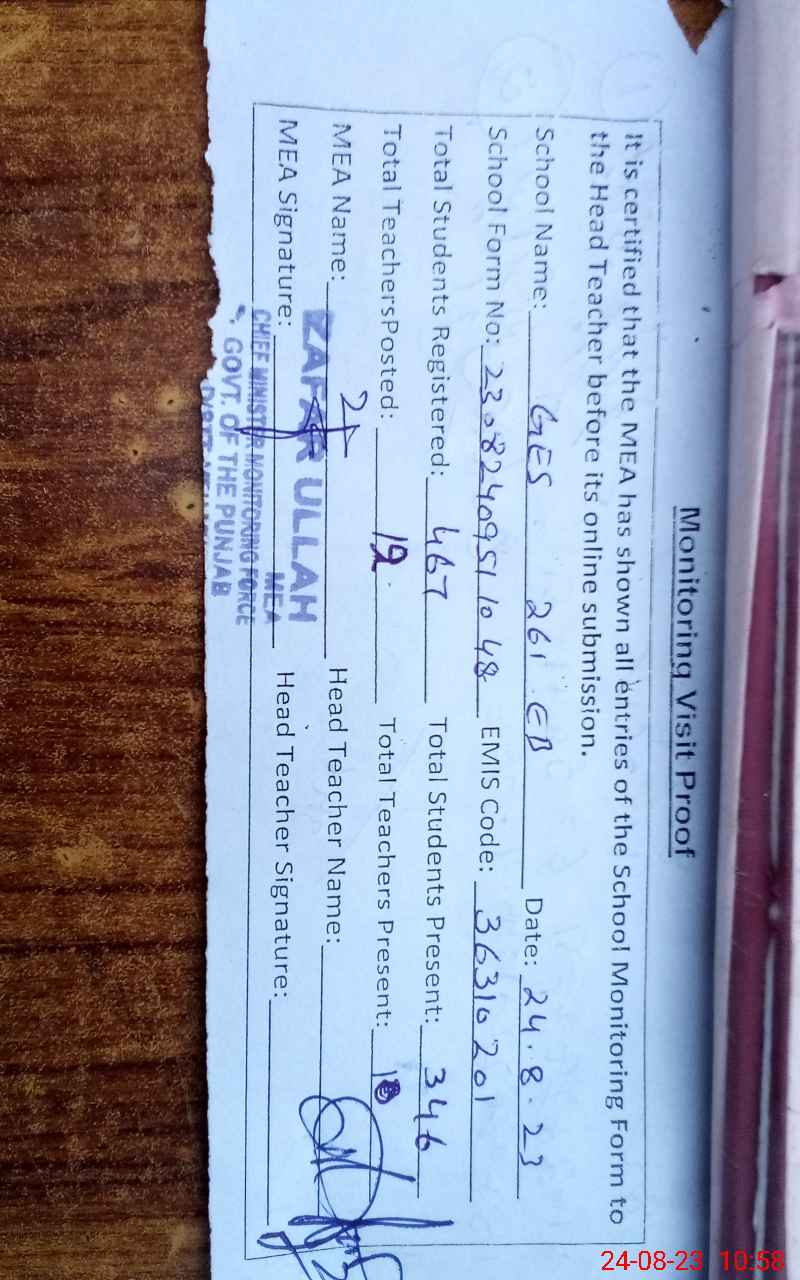 Monitoring Visit Proof
It is certified that the MEA has shown all entries of the School Monitoring Form to
the Head Teacher before its online submission.
School Name: GES 261 EB Date: 24.8.23
School Form No: 23082409511048 EMIS Code: 36310201
Total Students Registered: 467 Total Students Present: 346
Total TeachersPosted: 12 Total Teachers Present:
MEA Name: Head Teacher Name:
ZAFAR ULLAH
MEA Signature: MEA Head Teacher Signature:
CHIEF MINISTER MONITORING FORCE
GOVT. OF THE PUNJAB
24-08-23 10:58